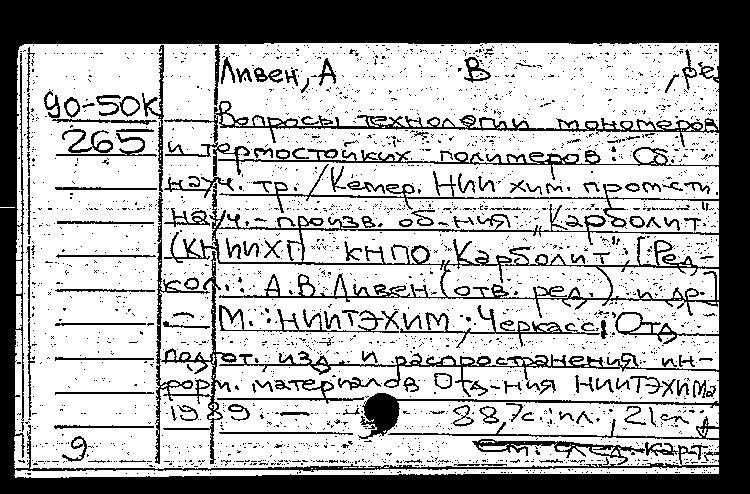 Ливен, А В , ред
90-50К
265
Вопросы технологии мономеров
и термостойких полимеров: Сб.
науч. тр. /Кемер. НИИ хим. пром-сти.
науч.-произв. об-ния „Карболит"
(КНИИХП КНПО „Карболит"; [Ред-
кол.: А.В. Ливен (отв. ред.) и др.]
— М.: НИИТЭХИМ; Черкассы Отд
подгот., изд. и распространения ин-
форм. материалов Отд-ния НИИТЭХИМа
1989. — 88,7с.: ил.; 21см
См. след. карт.
9